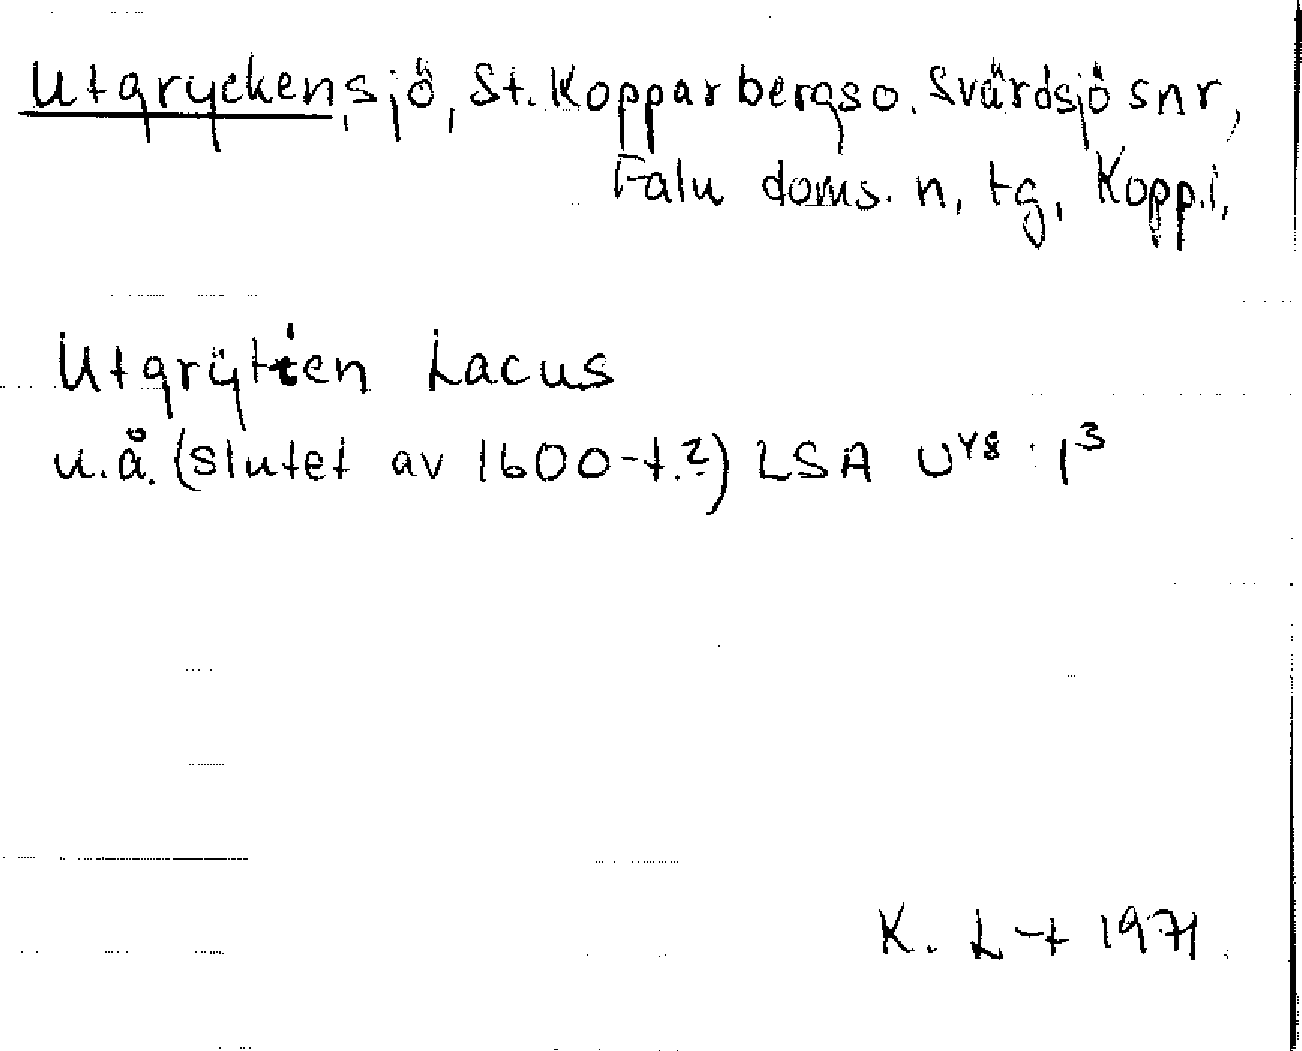 Utgrycken, sjö, St. Kopparbergs o. Svärdsjö snr,
Falu doms. n. tg, Kopp.l,
Utgrÿtien Lacus
u.å. (slutet av 1600-t.?) LSA U⁴⁸ : 1³
K. L-t 1971.